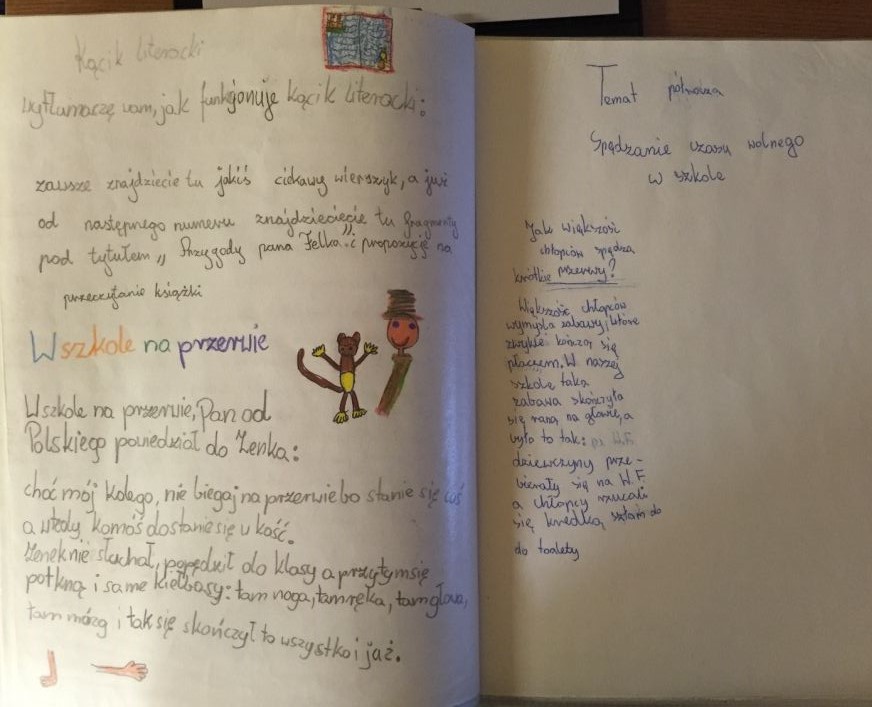 Kącik literacki
wytłumaczę wam, jak funkjonuje kącik literacki:
zawsze znajdziecie tu jakiś ciekawy wierszyk, a już
od następnego numeru znajdzieciecie tu fragmenty
pod tytułem „Przygody pana Felka" i propozycję na
przeczytanie książki
W szkole na przerwie
W szkole na przerwie, Pan od
Polskiego powiedział do Zenka:
choć mój kolego, nie biegaj na przerwie bo stanie się coś
a wtedy komóś dostanie się w kość.
Zenek nie słuchał, popędził do klasy a przytym się
potkną i same kiełbasy: tam noga, tam ręka, tam głowa,
tam mózg i tak się skończył to wszystko i jaż.
Temat półrocza
Spędzanie czasu wolnego
w szkole
Jak większość
chłopców spędza
krótkie przerwy?
Większość chłopców
wymyśla zabawy, które
zwykle kończą się
płaczem. W naszej
szkole taka
zabawa skończyła
się raną na głowie, a
było to tak: na W.F.
dziewczyny prze-
bierały się na W.F.
a chłopcy rzucali
się kredką, szłam do
do toalety